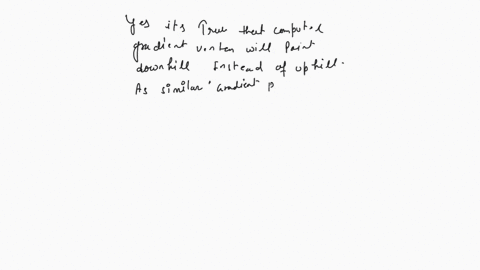 Yes its True that computed
gradient vector will Point
downhill Instead of uphill.
As similar gradient p